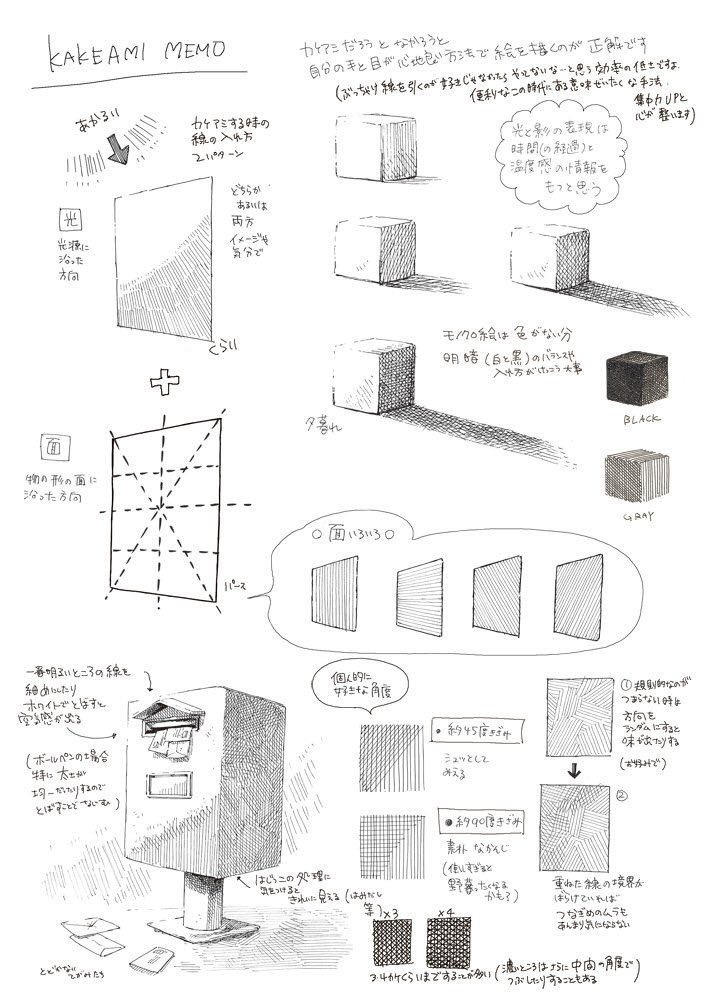 KAKEAMI MEMO
カケアミだろうとなかろうと
自分の手と目が心地良い方法で絵を描くのが正解です
(ぶっちゃけ線を引くのが好きじゃなかったらやってないな…と思う効率の低さですよ
便利なこの時代にある意味ぜいたくな手法
集中力UPと
心が整います)
あかるい
カケアミする時の
線の入れ方
2パターン
光
光源に
沿った
方向
どちらか
あるいは
両方
イメージや
気分で
くらい
光と影の表現は
時間(の経過)と
温度感の情報を
もつと思う
モノクロ絵は色がない分
明暗(白と黒)のバランスや
入れ方がけっこう大事
夕暮れ
BLACK
GRAY
面
物の形の面に
沿った方向
パース
○面いろいろ○
一番明るいところの線を
細めにしたり
ホワイトでとばすと
空気感が出る
(ボールペンの場合
特に太さが
均一だったりするので
とばすことが多いです)
はじっこの処理に
気をつけると
きれいに見える(はみだし
等)
とどかない
てがみたち
個人的に
好きな角度
●約45度きざみ
シュッとして
みえる
●約90度きざみ
素朴なかんじ
(使いすぎると
野暮ったくなる
かも?)
×3
×4
3〜4カケくらいまですることが多い(濃いところはさらに中間の角度で
つぶしたりすることもある)
①規則的なのが
つまらない時は
方向を
ランダムにすると
味が出たりする
(お好みで)
②
重ねた線の境界が
ばらけていれば
つなぎめのムラも
あんまり気にならない